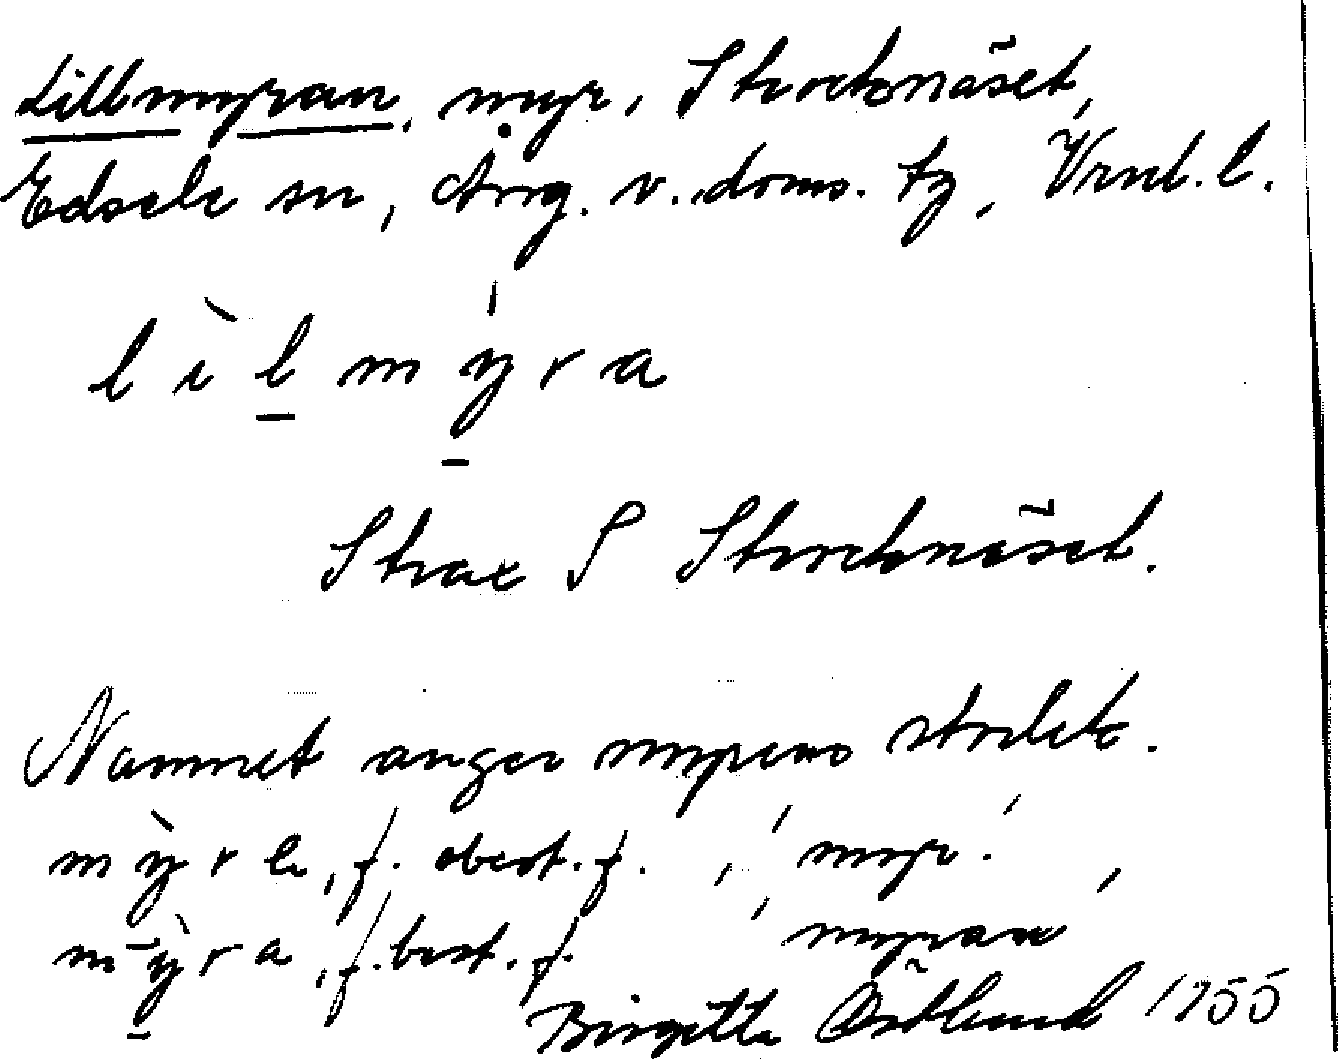 Lillmyran, myr, Strocknäset,
Edsele sn, Ång. v. doms. tg, Vrnl. l.
lìlmýra
Strax S Strocknäset.
Namnet anger myrens storlek.
mỳre, f. obest. f., 'myr'.
mỳra, f. best. f. 'myran'
Birgitta Östlund 1955